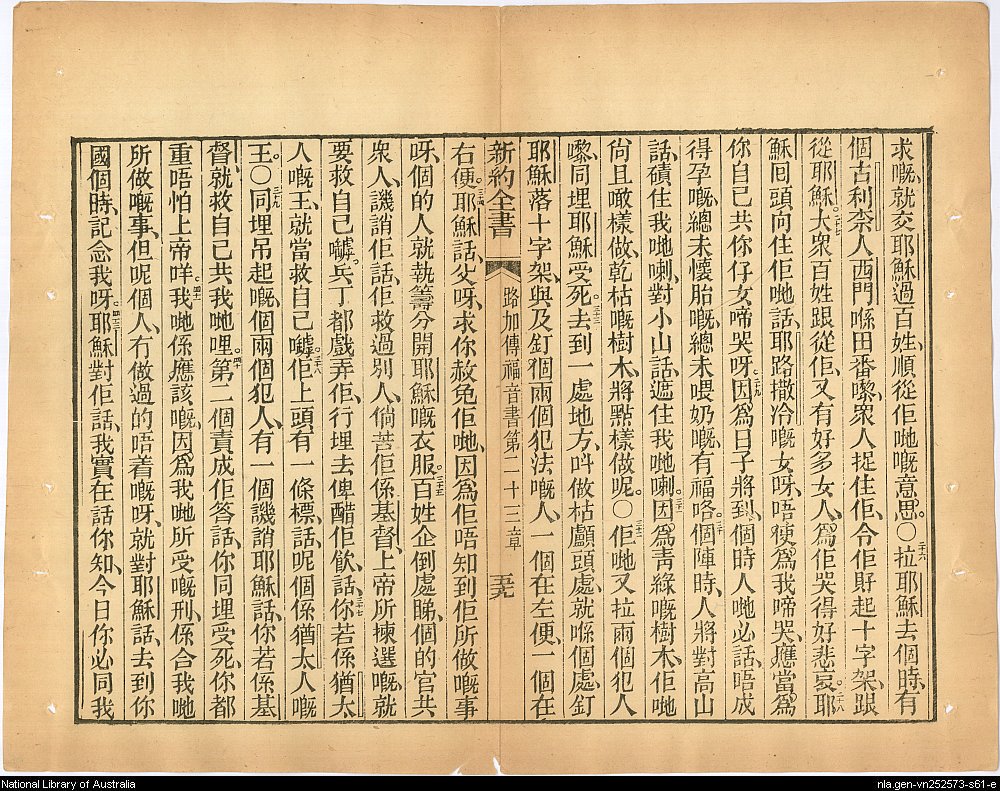 求嘅、就交耶穌過百姓、順從佢哋嘅意思。〇二十六拉耶穌去個時、有
個古利奈人西門、喺田番嚟、衆人捉住佢、令佢𢬿起十字架、跟
從耶穌。二十七大衆百姓跟從佢、又有好多女人、爲佢哭得好悲哀。二十八耶
穌囘頭向住佢哋話、耶路撒冷嘅女呀、唔使爲我啼哭、應當爲
你自己共你仔女啼哭呀。二十九因爲日子將到、個時人哋必話、唔成
得孕嘅、總未懷胎嘅、總未喂奶嘅、有福咯。三十個陣時、人將對高山
話、磧住我哋喇、對小山話、遮住我哋喇。三十一因爲靑綠嘅樹木、佢哋
尙且噉樣做、乾枯嘅樹木、將點樣做呢。〇三十二佢哋又拉兩個犯人
嚟、同埋耶穌受死。三十三去到一處地方、叫做枯顱頭處、就喺個處、釘
耶穌落十字架、與及釘個兩個犯法嘅人、一個在左便、一個在
新約全書 路加傳福音書第二十三章 五十九
右便。三十四耶穌話、父呀、求你赦免佢哋、因爲佢唔知到佢所做嘅事
呀、個的人就執籌分開耶穌嘅衣服。三十五百姓企倒處睇、個的官共
衆人、譏誚佢話、佢救過別人、倘若佢係基督、上帝所揀選嘅、就
要救自己嚹。三十六兵丁都戲弄佢、行埋去俾醋佢飮、三十七話、你若係猶太
人嘅王、就當救自己嚹。三十八佢上頭有一條標、話、呢個係猶太人嘅
王。〇三十九同埋吊起嘅、個兩個犯人、有一個譏誚耶穌話、你若係基
督、就救自己共我哋哩。四十第二個責成佢答話、你同埋受死、你都
重唔怕上帝咩。四十一我哋係應該嘅、因爲我哋所受嘅刑、係合我哋
所做嘅事、但呢個人、冇做過的唔着嘅呀。四十二就對耶穌話、去到你
國個時、記念我呀。四十三耶穌對佢話、我實在話你知、今日你必同我